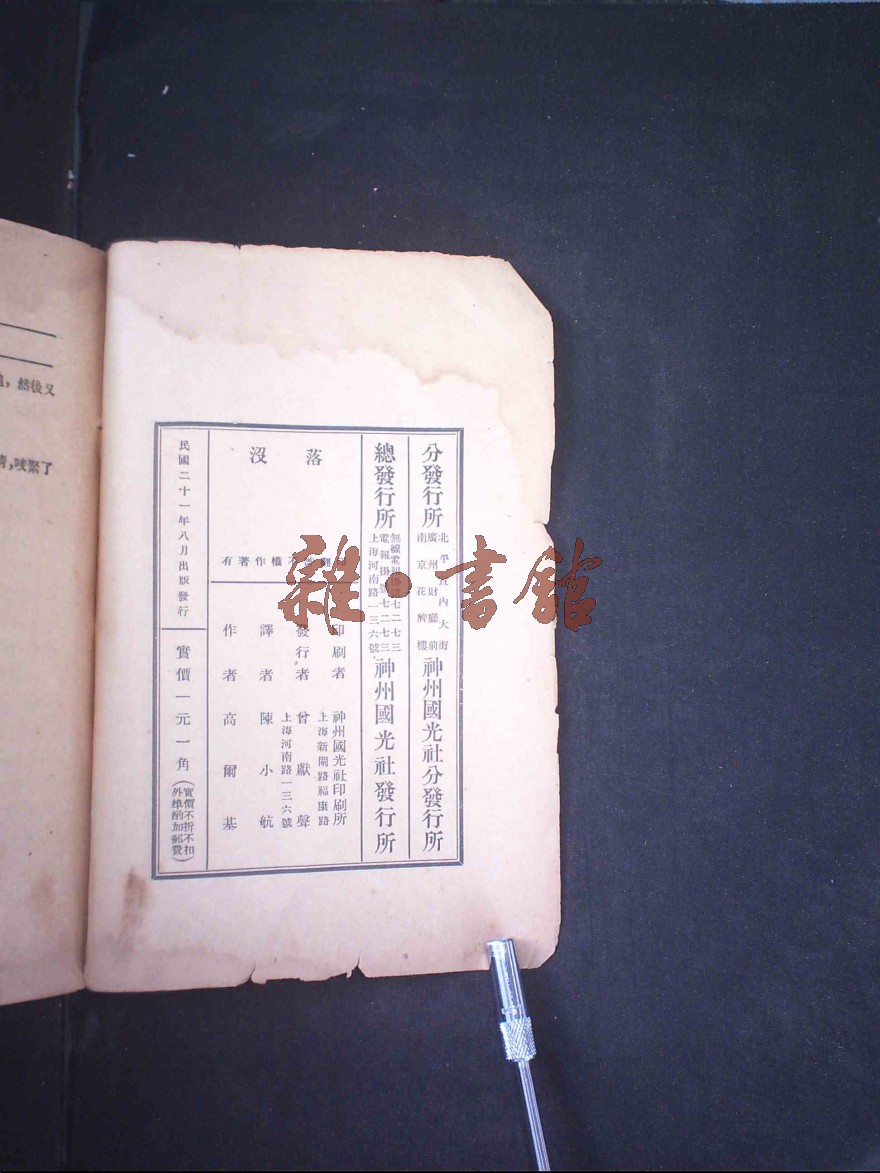 分發行所
北平宣內大街
廣州財廳前
南京花牌樓
神州國光社分發行所
總發行所
無線電報掛號七二七三
電報掛號七二七三
上海河南路一三六號
神州國光社發行所
沒落
有著作權不翻印
印刷者 神州國光社印刷所
上海新閘路福康路
發行者 曾獻聲
上海河南路一三六號
譯者 陳小航
作者 高爾基
民國二十一年八月出版發行
實價一元一角
(實價不折不扣
外埠酌加郵費)
,然後又
,咬緊了
雜·書館